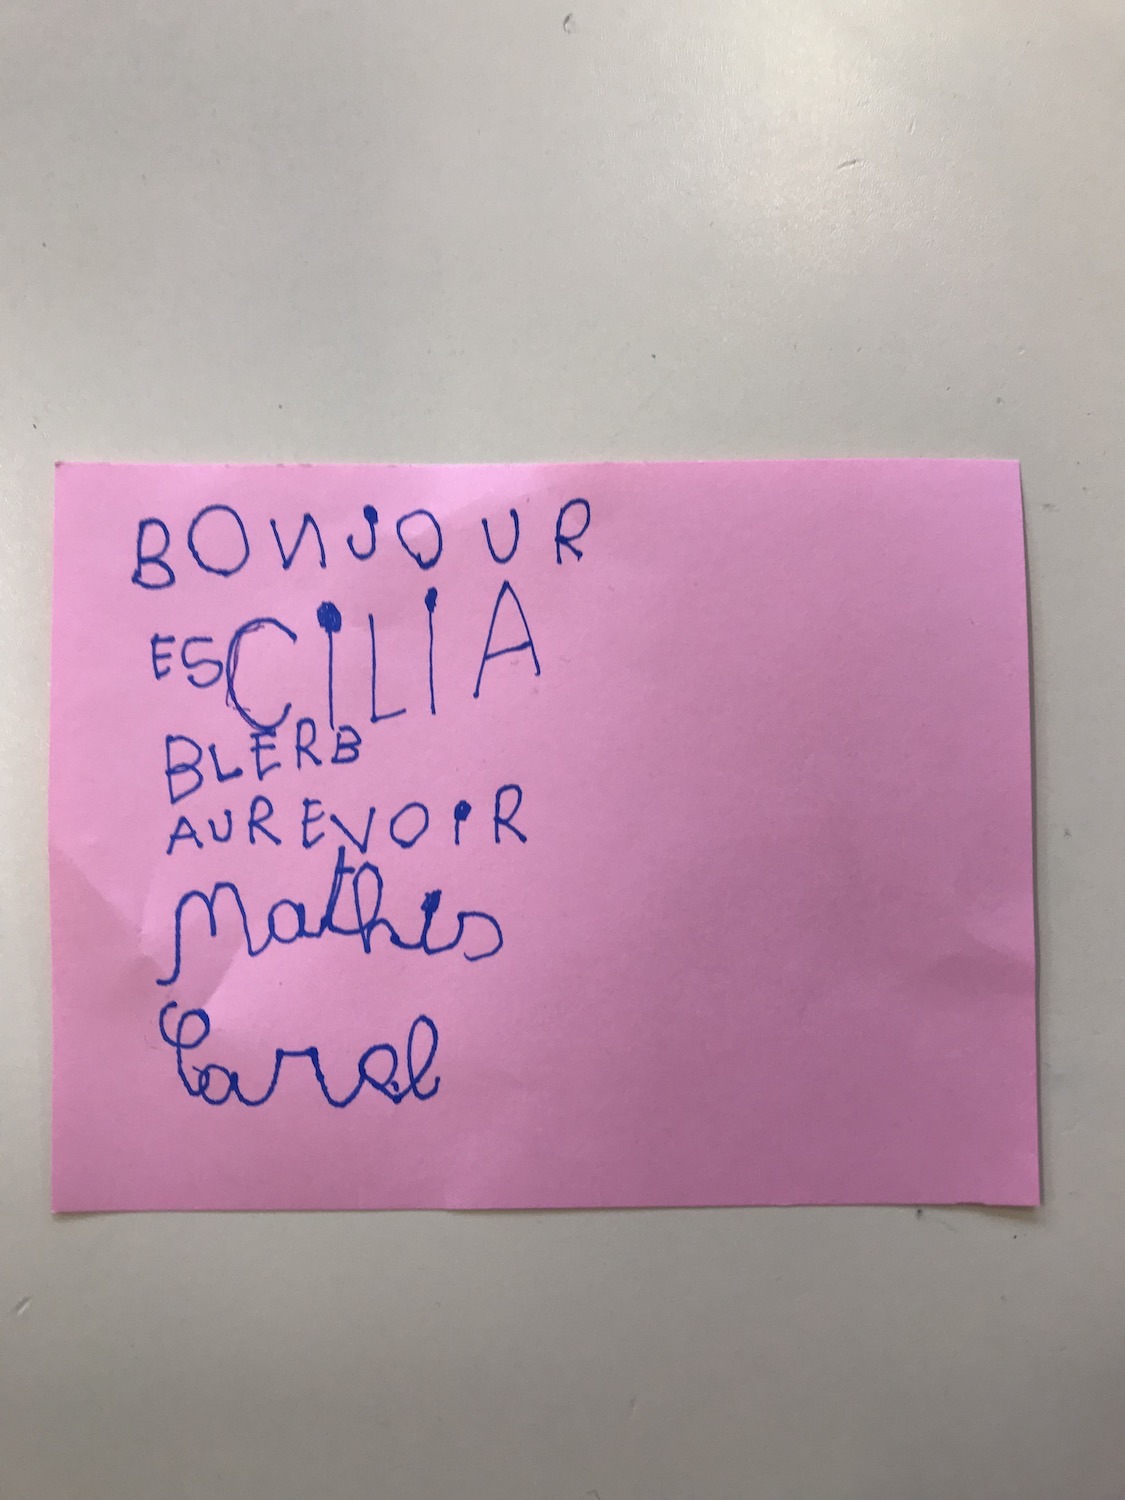 BONJOUR
ESCiLiA
BLERB
AUREVOiR
Mathis
Carol